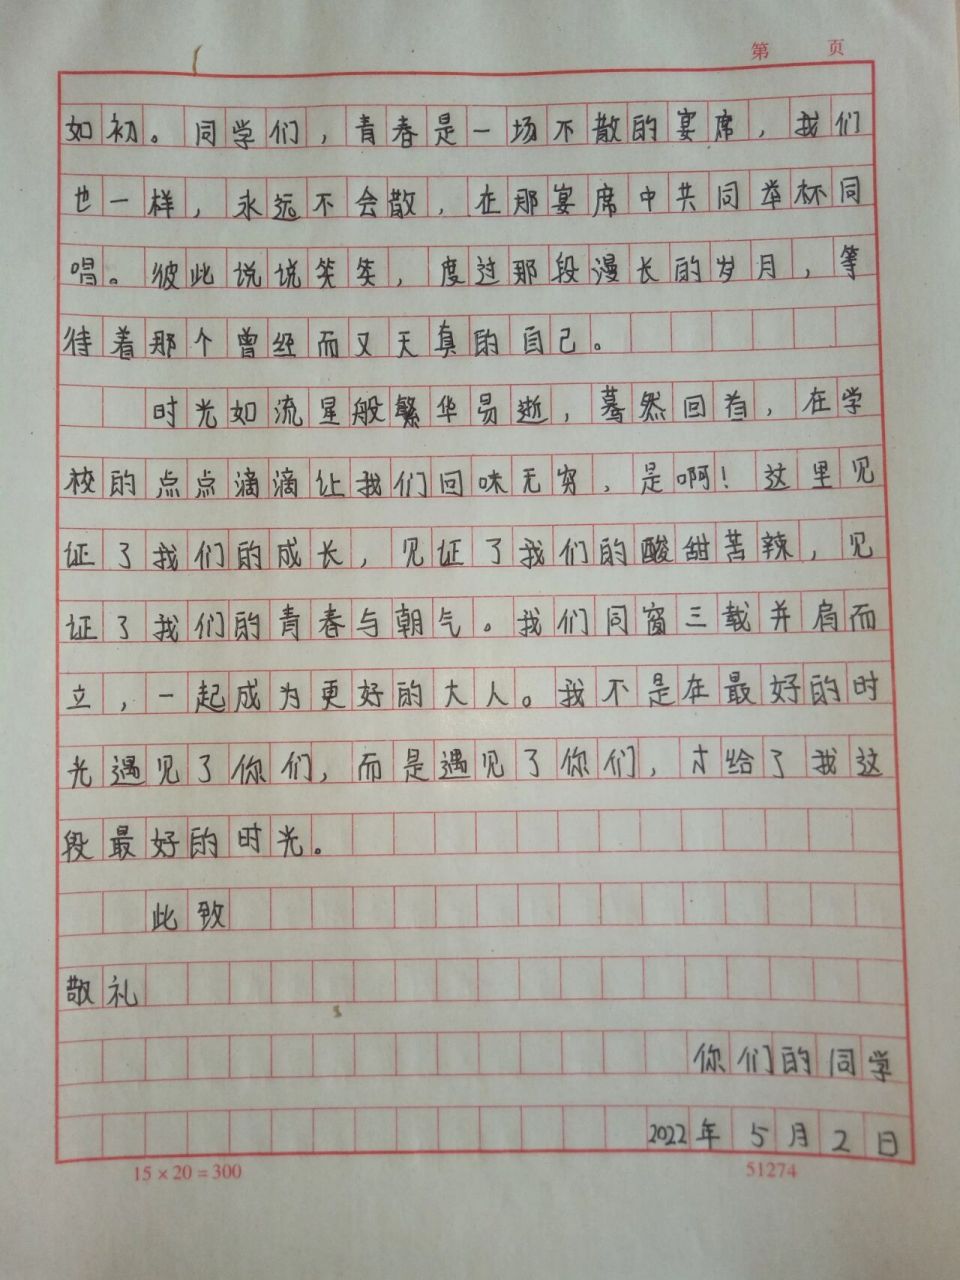 第 页
如初。同学们，青春是一场不散的宴席，我们
也一样，永远不会散，在那宴席中共同举杯同
唱。彼此说说笑笑，度过那段漫长的岁月，等
待着那个曾经而又天真的自己。
时光如流星般繁华易逝，蓦然回首，在学
校的点点滴滴让我们回味无穷，是啊！这里见
证了我们的成长，见证了我们的酸甜苦辣，见
证了我们的青春与朝气。我们同窗三载并肩而
立，一起成为更好的大人。我不是在最好的时
光遇见了你们，而是遇见了你们，才给了我这
段最好的时光。
此致
敬礼
你们的同学
2022年5月2日
15×20=300 51274